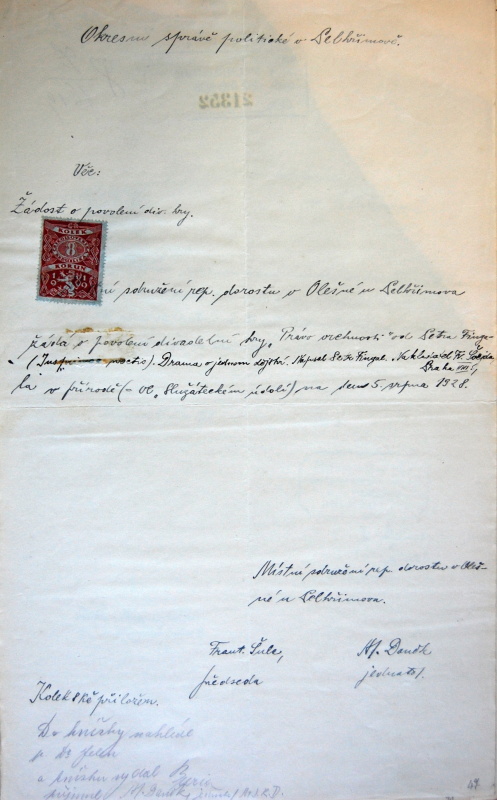 Okresní správě politické v Pelhřimově.
21352
Věc:
Žádost o povolení div. hry.
KOLEK
8
KORUN
ní sdružení rep. dorostu v Olešné u Pelhřimova
žádá o povolení divadelní hry „Právo vrchnosti" od Petra Fingo-
Drama o jednom dějství. Napsal Petr Fingal. Nakladatel Fr.
Praha VIII
la v přírodě (- ve „Služáteckém údolí) na den 5. srpna 1928.
Místní sdružení rep. dorostu v Oleš-
né u Pelhřimova.
Frant. Šula,
předseda
Al. Daněk
jednatel.
Kolek 8 Kč přiložen.
Do knížky nahlédl
a knížku vydal
přijmul Al. Daněk
47